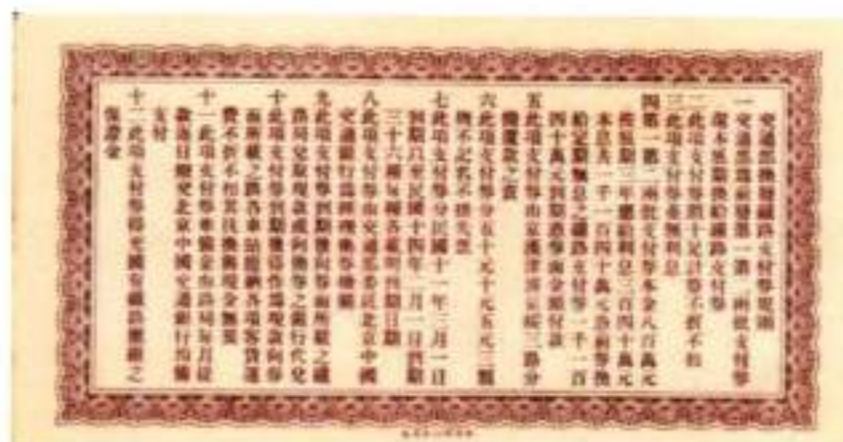 交通部換發鐵路支付券規則
一 交通部為換發第一第二兩批支付券
保本無期換給鐵路支付券
二 此項支付券照十足計算不折不扣
三 此項支付券並無利息
四 第一第二兩批支付券本金八百萬元
按無期三年應給利息三百四十萬元
本息共一千一百四十萬元由部券換
給定期無息之鐵路支付券一千一百
四十萬元到期憑券面金額付款
五 此項支付券由京漢津浦京綏三路分
擔還款之責
六 此項支付券分五十元十元五元三種
概不記名不掛失票
七 此項支付券分民國十一年三月一日
到期八至民國十四年二月一日到期
三十六種每種各載明到期日期
八 此項支付券由交通部委託北京中國
交通銀行為經理機關
九 此項支付券到期應向券面所載之鐵
路局兌取現款或向換券之銀行代兌
十 此項支付券到期後得作為現款向券
面所載之路各車站繳納各項客貨運
費不折不扣其找換與現金無異
十一 此項支付券準備金由路局每月從
款逐日繳交北京中國交通銀行預備
支付
十二 此項支付券得充國有鐵路應繳之
保證金